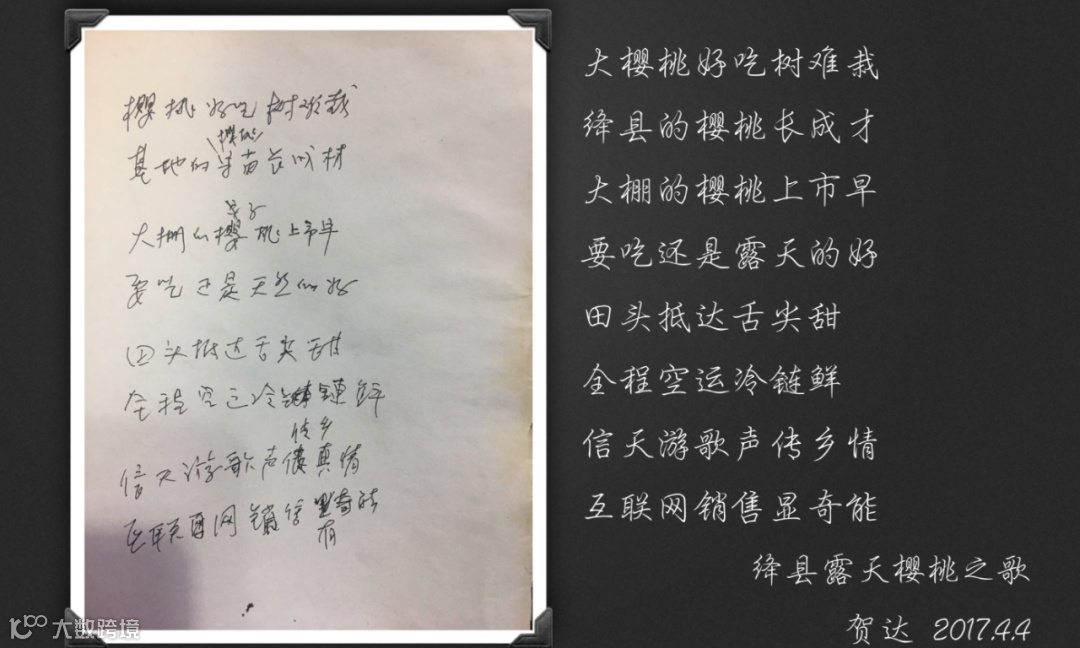 樱桃好吃树难栽
樱桃
基地的苗长成材
大棚的樱桃上市早
要吃还是天然的好
田头抵达舌尖甜
全程空运冷链鲜
传乡
信天游歌声真情
互联网销售显奇能
有
大樱桃好吃树难栽
绛县的樱桃长成才
大棚的樱桃上市早
要吃还是露天的好
田头抵达舌尖甜
全程空运冷链鲜
信天游歌声传乡情
互联网销售显奇能
绛县露天樱桃之歌
贺达 2017.4.4
大数跨境